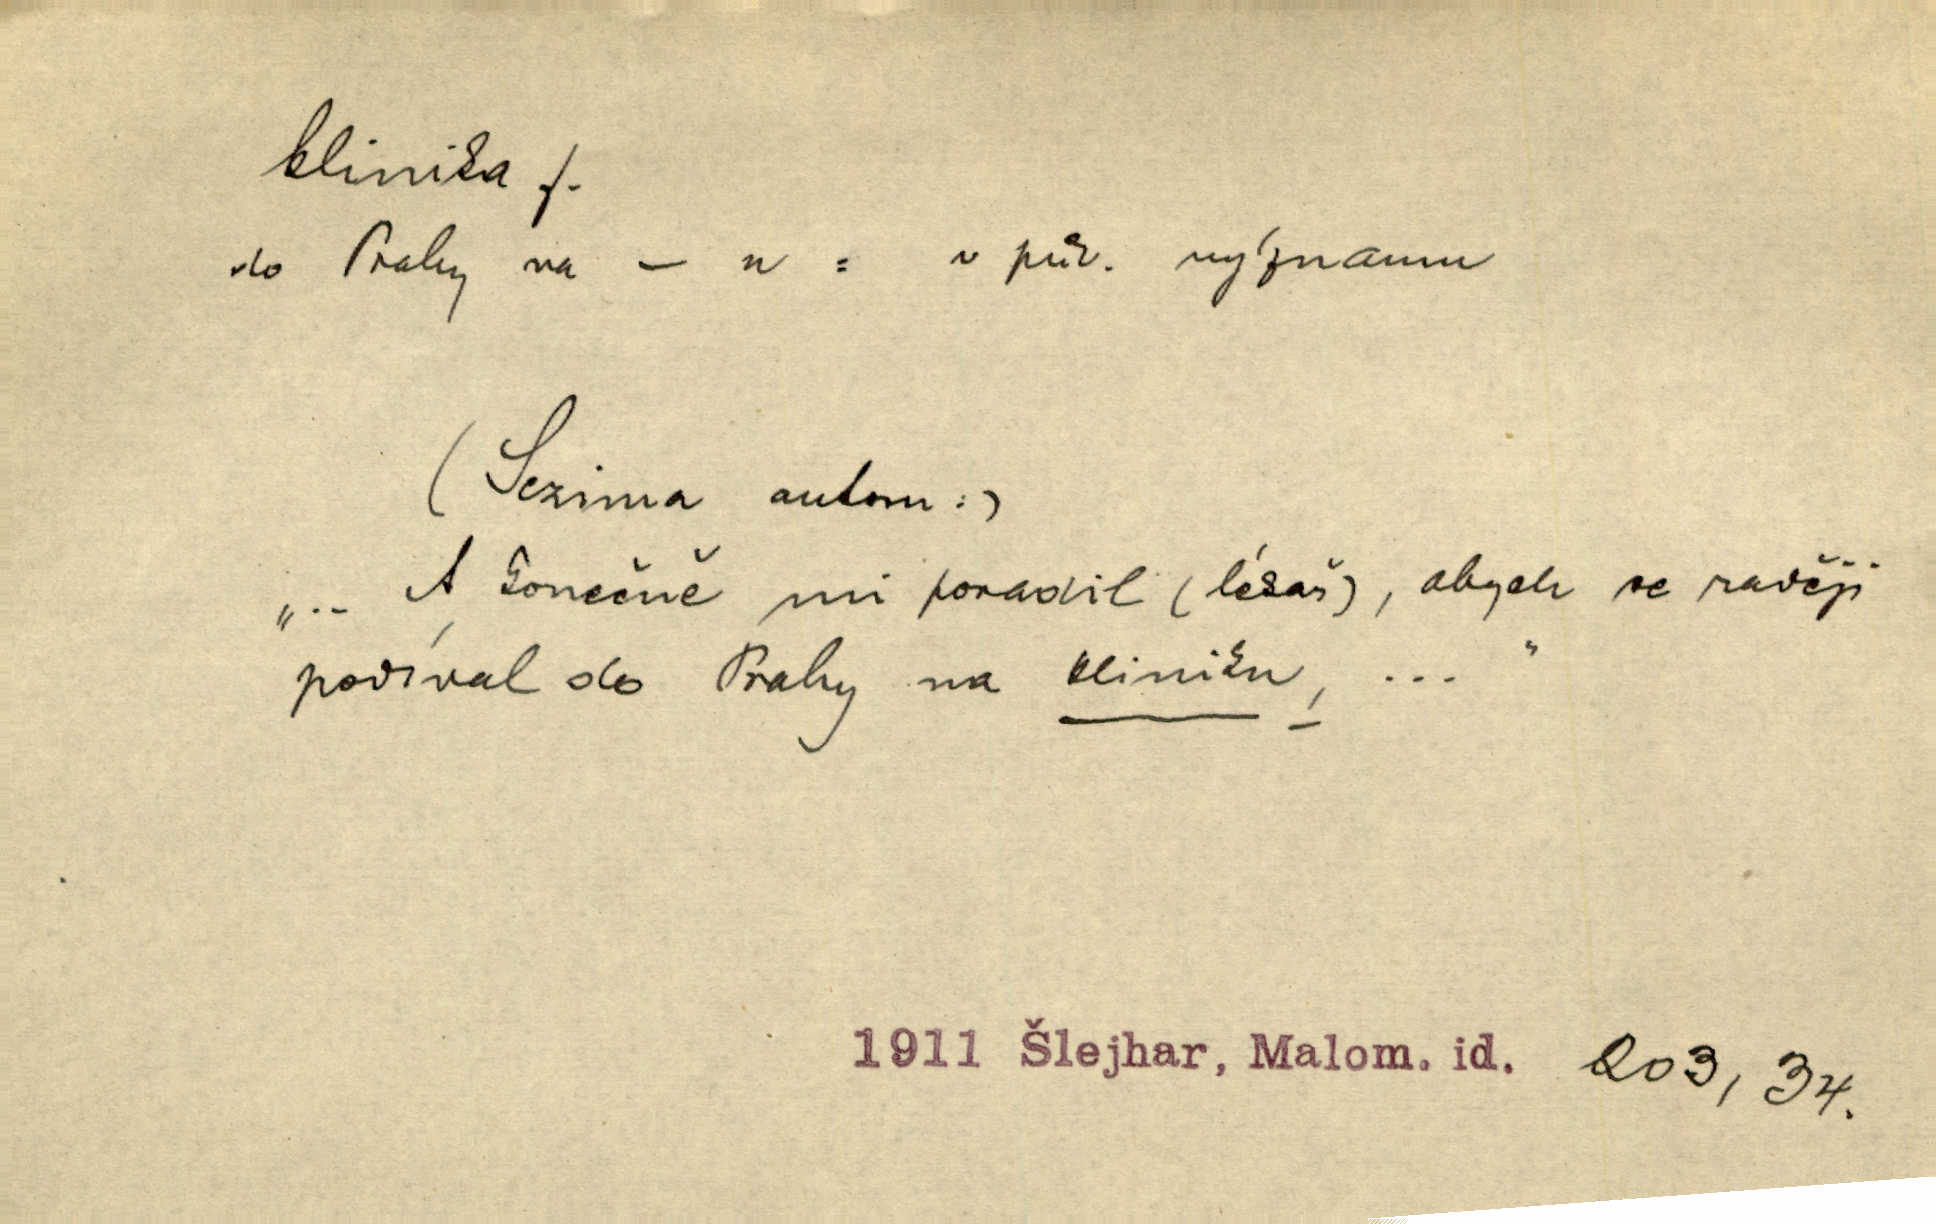 klinika f.
do Prahy na — u = v pův. významu
(Sezima autom:)
„.. A konečně mi poradil (lékař), abych se raději
podíval do Prahy na kliniku, ... "
1911 Šlejhar, Malom. id. 203, 34.